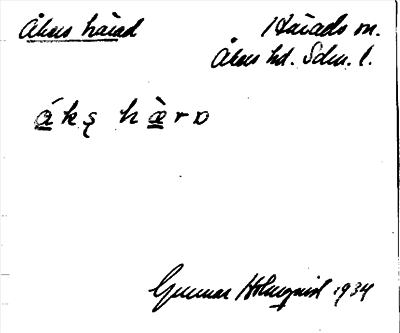 Åkers härad
Härads m.
Åkers hd. Sdm. l.
á̲kş hæ̲̀rɒ
Gunnar Holmquist 1934